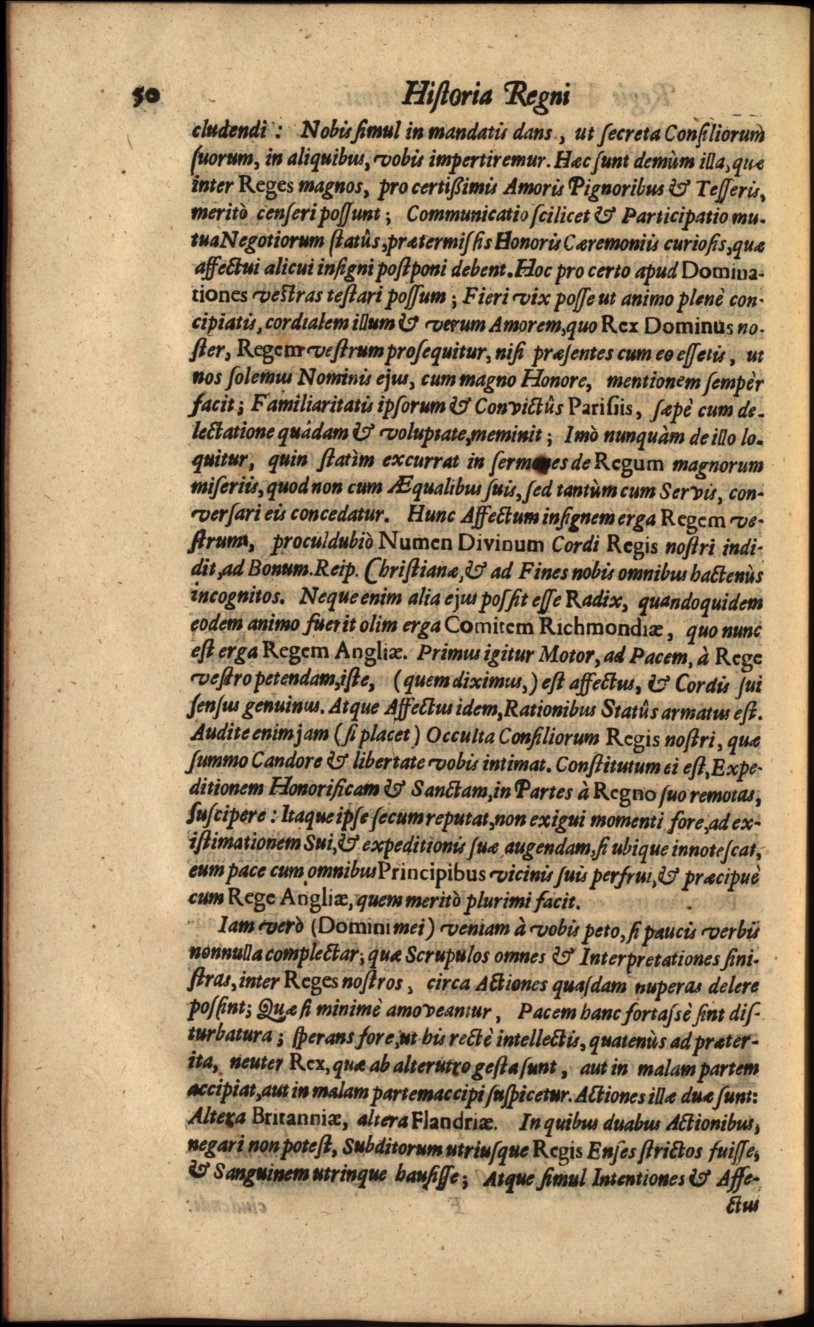 50 Hiſtoria Regni
cludendi : Nobis ſimul in mandatis dans, ut ſecreta Conſiliorum
ſuorum, in aliquibus, vobis impertiremur. Hæc ſunt demùm illa, quæ
inter Reges magnos, pro certißimis Amoris Pignoribus & Teſſeris,
meritò cenſeri poſſunt ; Communicatio ſcilicet & Participatio mu-
tua Negotiorum ſtatûs, prætermiſsis Honoris Cæremoniis curioſis, quæ
affectui alicui inſigni poſtponi debent. Hoc pro certo apud Domina-
tiones veſtras teſtari poſſum ; Fieri vix poſſe ut animo plenè con-
cipiatis, cordialem illum & verum Amorem, quo Rex Dominus no-
ſter, Regem veſtrum proſequitur, niſi præſentes cum eo eſſetis, ut
nos ſolemus Nominis ejus, cum magno Honore, mentionem ſempèr
facit ; Familiaritatis ipſorum & Convictûs Pariſiis, ſæpè cum de-
lectatione quâdam & voluptate, meminit ; Imò nunquàm de illo lo-
quitur, quin ſtatìm excurrat in ſermones de Regum magnorum
miſeriis, quod non cum Æqualibus ſuis, ſed tantùm cum Servis, con-
verſari eis concedatur. Hunc Affectum inſignem erga Regem ve-
ſtrum, proculdubiò Numen Divinum Cordi Regis noſtri indi-
dit, ad Bonum. Reip. Chriſtianæ, & ad Fines nobis omnibus hactenùs
incognitos. Neque enim alia ejus poſſit eſſe Radix, quandoquidem
eodem animo fuerit olim erga Comitem Richmondiæ, quo nunc
eſt erga Regem Angliæ. Primus igitur Motor, ad Pacem, à Rege
veſtro petendam, iſte, (quem diximus,) eſt affectus, & Cordis ſui
ſenſus genuinus. Atque Affectus idem, Rationibus Statûs armatus eſt.
Audite enim jam (ſi placet) Occulta Conſiliorum Regis noſtri, quæ
ſummo Candore & libertate vobis intimat. Conſtitutum ei eſt, Expe-
ditionem Honorificam & Sanctam, in Partes à Regno ſuo remotas,
ſuſcipere : Itaque ipſe ſecum reputat, non exigui momenti fore, ad ex-
iſtimationem Sui, & expeditionis ſuæ augendam, ſi ubique innoteſcat,
eum pace cum omnibus Principibus vicinis ſuis perfrui, & præcipuè
cum Rege Angliæ, quem meritò plurimi facit.
Iam verò (Domini mei) veniam à vobis peto, ſi paucis verbis
nonnulla complectar, quæ Scrupulos omnes & Interpretationes ſini-
ſtras, inter Reges noſtros, circa Actiones quaſdam nuperas delere
poſſint ; Quæ ſi minimè amoveantur, Pacem hanc fortaſsè ſint diſ-
turbatura ; ſperans fore, ut his rectè intellectis, quatenùs ad præter-
ita, neuter Rex, quæ ab alterutro geſta ſunt, aut in malam partem
accipiat, aut in malam partem accipi ſuſpicetur. Actiones illæ duæ ſunt:
Altera Britanniæ, altera Flandriæ. In quibus duabus Actionibus,
negari non poteſt, Subditorum utriuſque Regis Enſes ſtrictos fuiſſe,
& Sanguinem utrinque hauſiſſe ; Atque ſimul Intentiones & Affe-
ctus